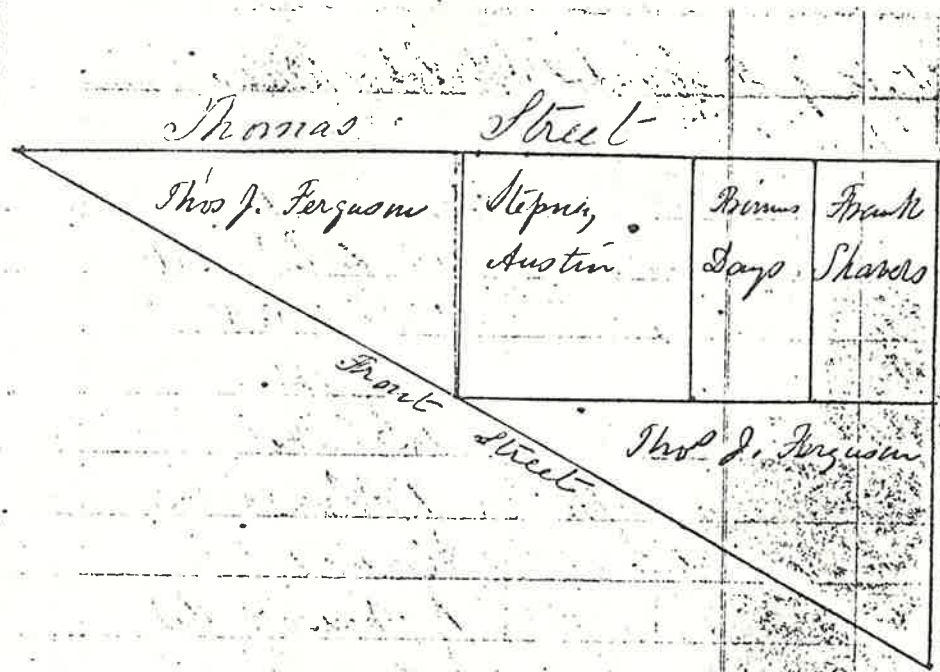 Thomas Street
Thos J. Ferguson
Stepney
Austin
Days
Frank
Shavers
Front Street
Thos J. Ferguson